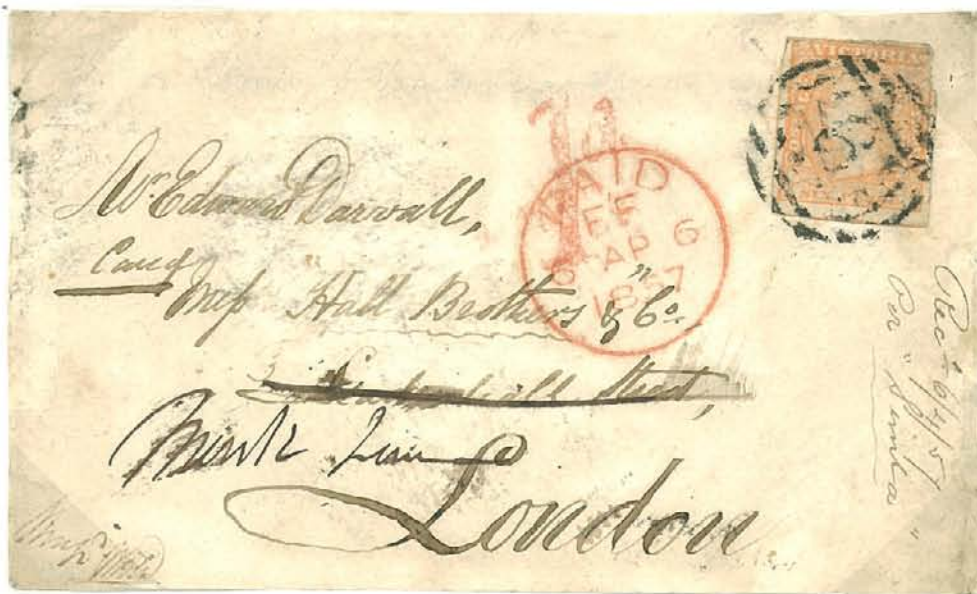 VICTORIA
PAID
EE
6 AP 6
1857
Mr Edward Darvall,
Care of
Messrs Hall Brothers & Co.
Street,
Mark Lane
London
Recd 6/4/57
Per "Simla"